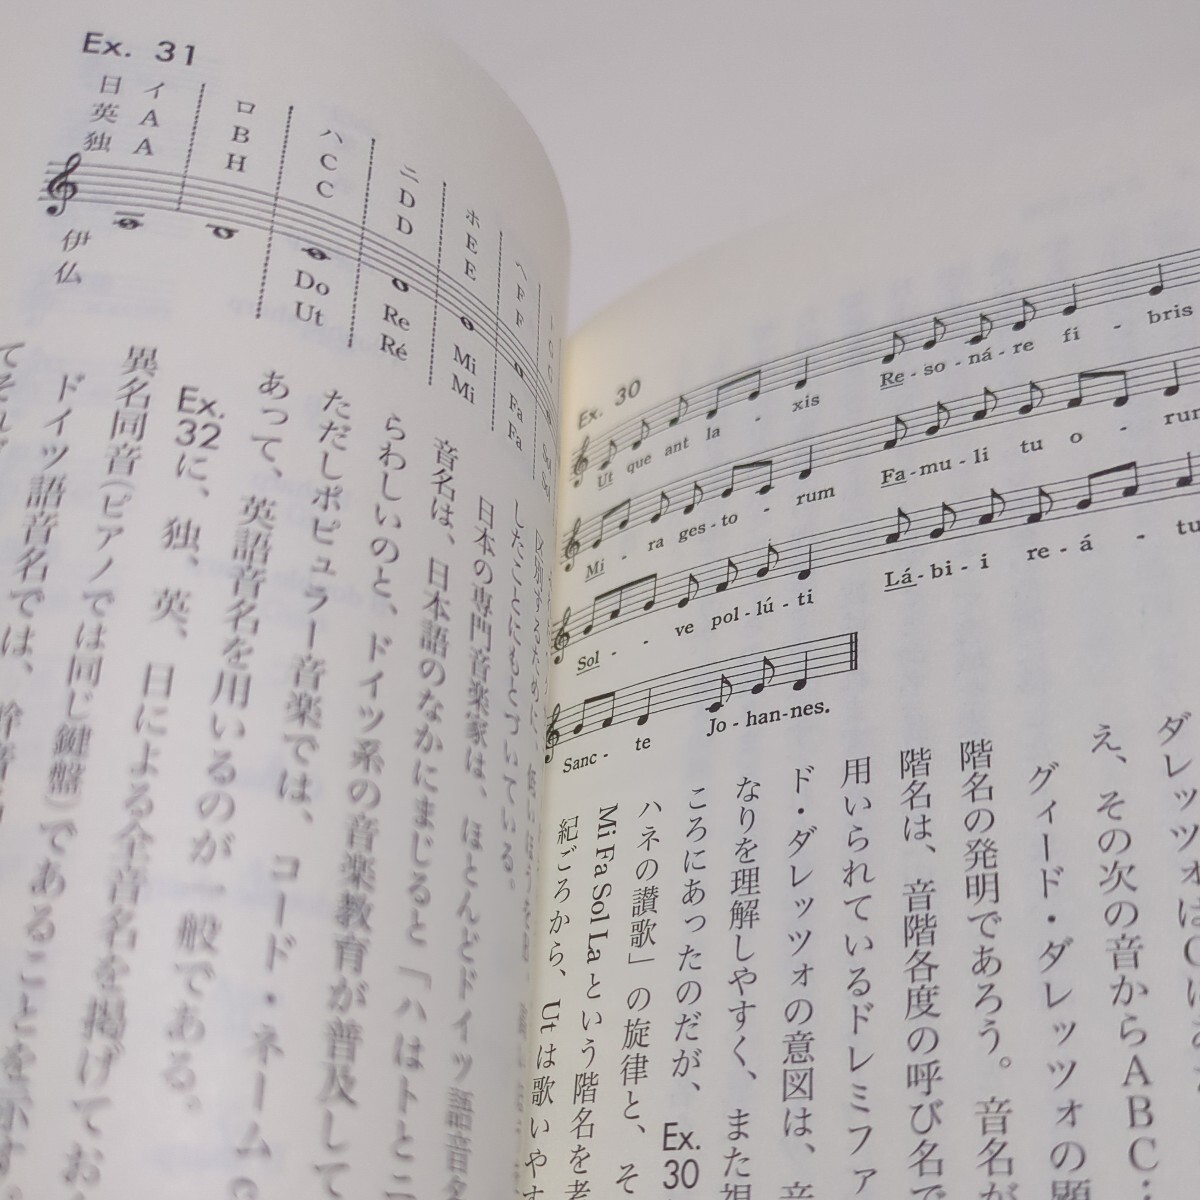 Ex. 30
Ut que ant la - xis
Re - so - ná - re fi - bris
Mi - ra ges - to - rum
Fa - mu - li tu o - rum
Sol - ve pol - lú - ti
Lá - bi - i re - á - tu
Sanc - te Jo - han - nes.
え、その次の音からABC・
グィード・ダレッツォの
階名の発明であろう。音名が
階名は、音階各度の呼び名で
用いられているドレミファ
ド・ダレッツォの意図は、
なりを理解しやすく、また
ころにあったのだが、Ex. 30
ハネの讃歌」の旋律と、そ
Mi Fa Sol La という階名を考
紀ごろから、Utは歌いやす
Ex. 31
日 イ ロ ハ ニ ホ ヘ ト
英 A B C D E F G
独 A H C D E F G
伊 Do Re Mi Fa Sol
仏 Ut Ré Mi Fa Sol
したことにもとづいている。
日本の専門音楽家は、ほとんどドイツ語音名
音名は、日本語のなかにまじると「ハはトとニ
らわしいのと、ドイツ系の音楽教育が普及して
ただしポピュラー音楽では、コード・ネーム
あって、英語音名を用いるのが一般である。
Ex. 32に、独、英、日による全音名を掲げてお
異名同音(ピアノでは同じ鍵盤)であることを示す
ドイツ語音名では、幹音